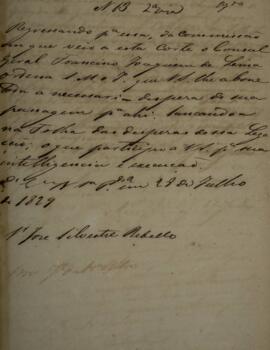 N 13 2ª via
Regressando pª essa, da Commissão
em que veio a esta Corte o Consul
Geral Francisco Joaquim de Lima
Ordena S M o I. que V S. lhe abone
toda a necessaria despeza de sua
passagem pª ahi. lançando a
na folha das despezas dessa Leg
o que participo a V S. pª sua
intelligencia e execução.
em 28 de Julho
de 1829
Sr José Silvestre Rebello